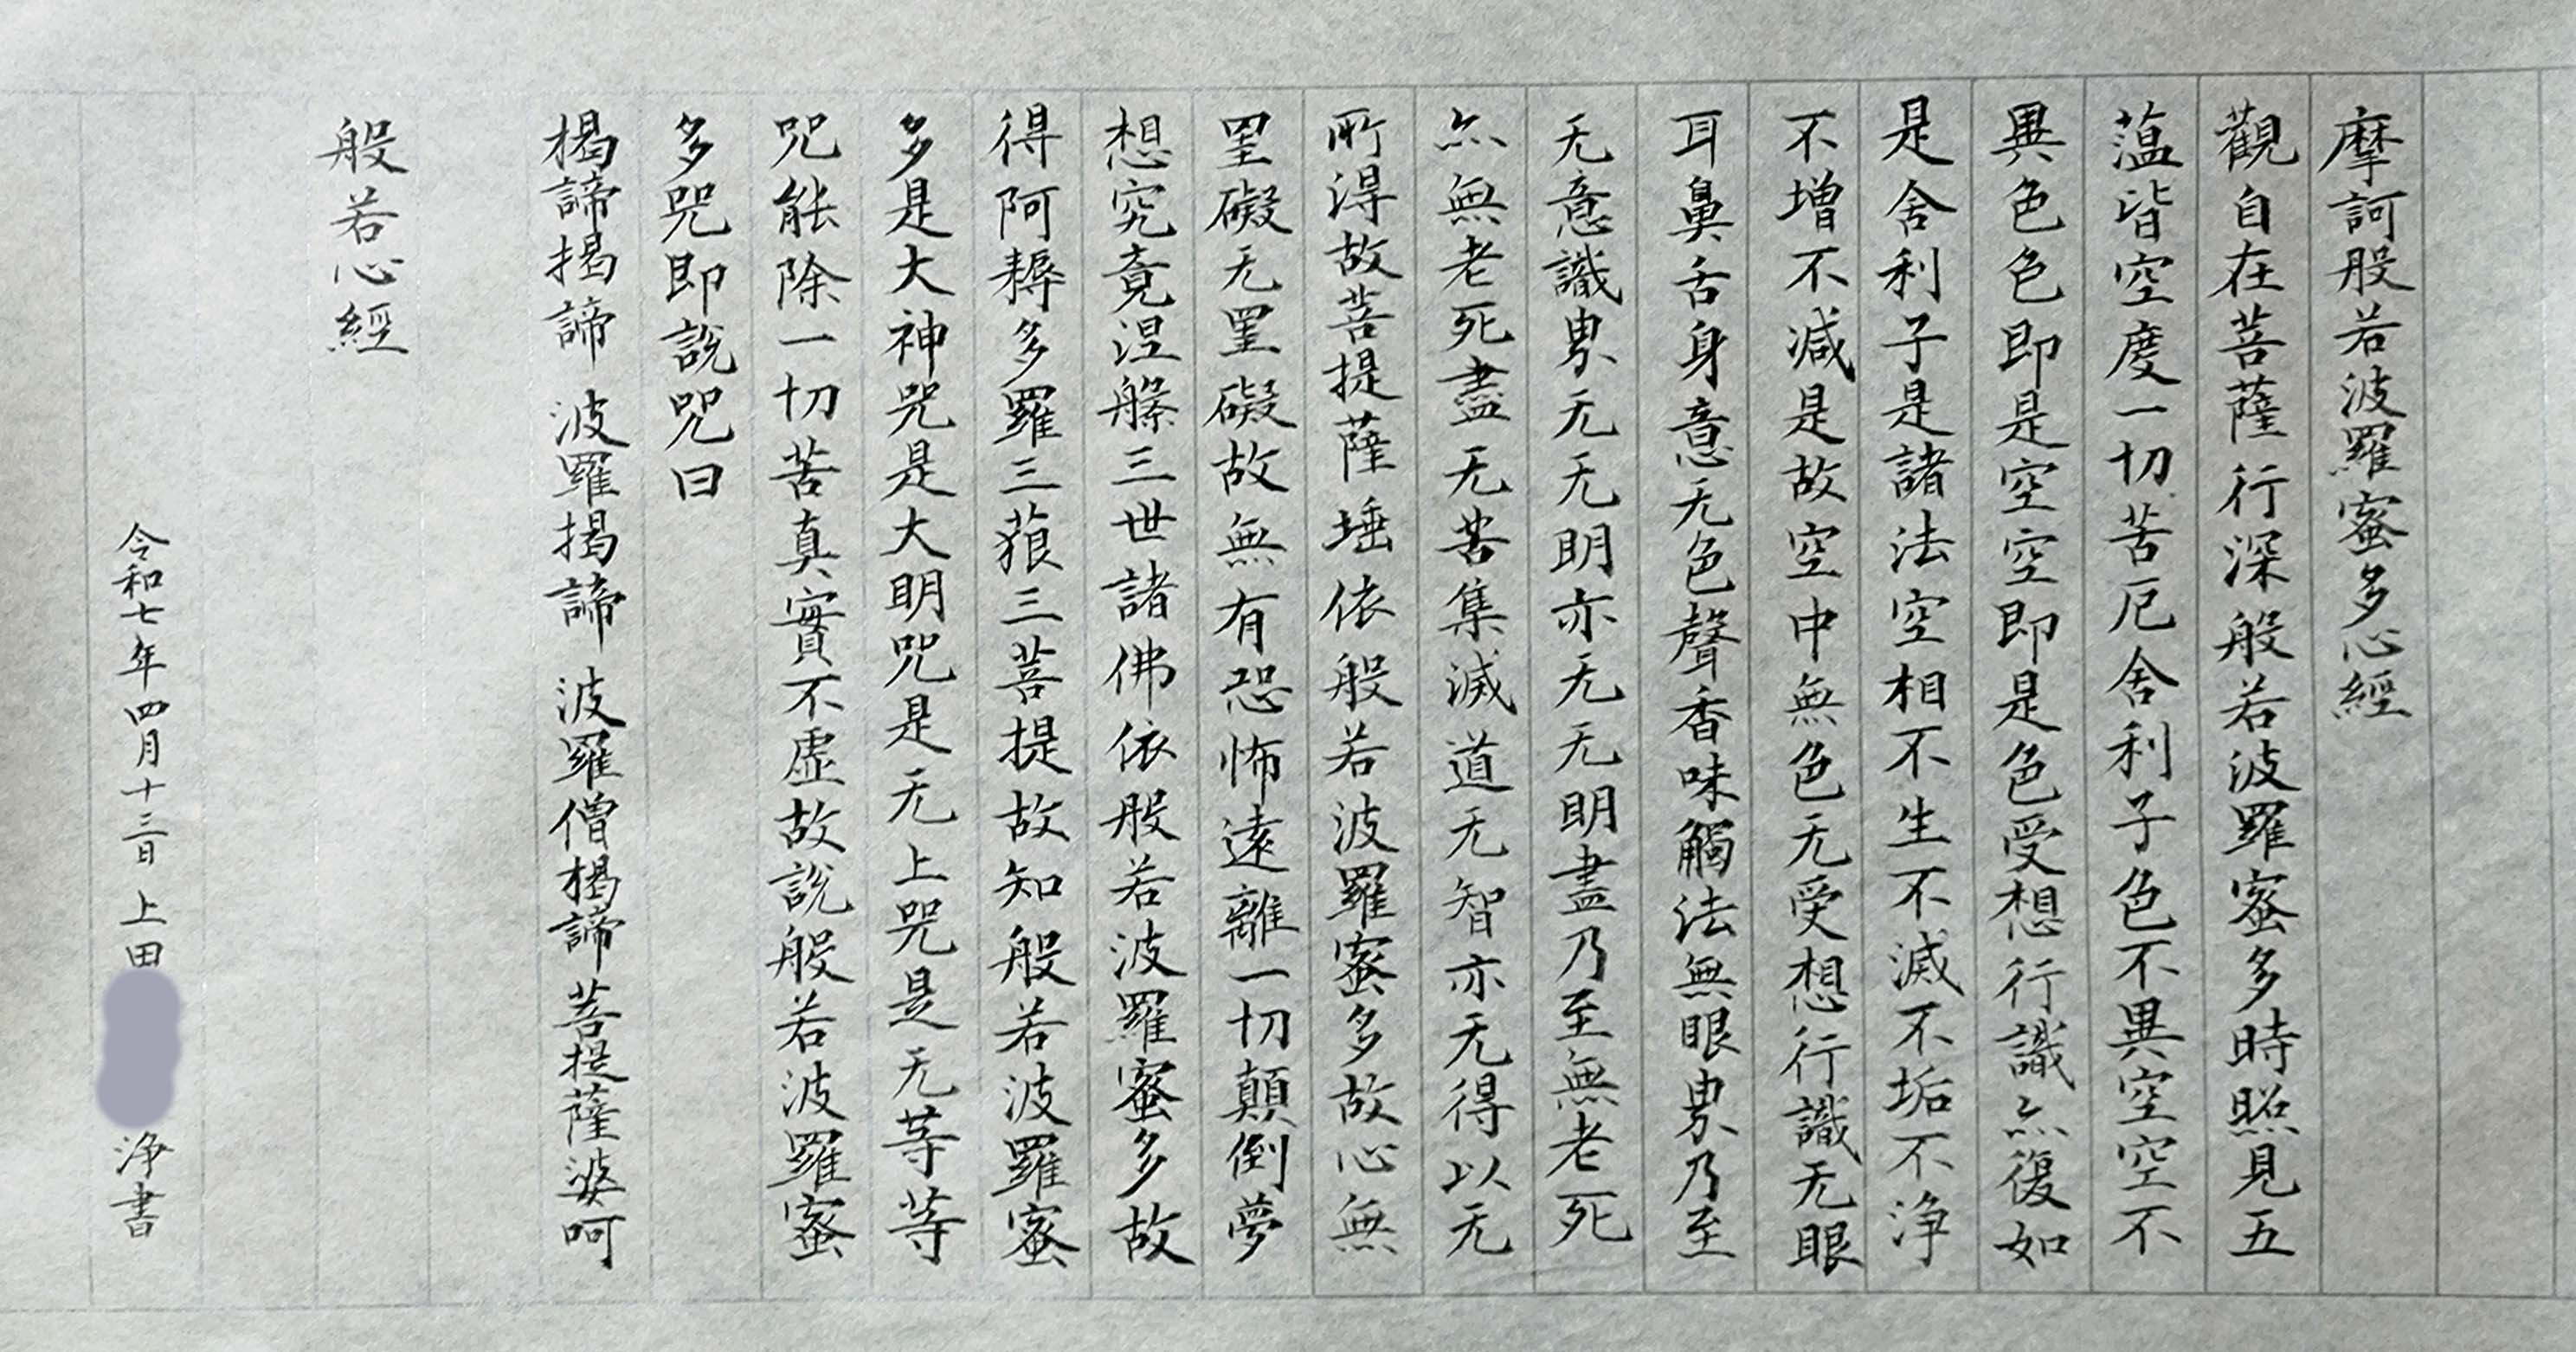 摩訶般若波羅蜜多心經
觀自在菩薩行深般若波羅蜜多時照見五
薀皆空度一切苦厄舍利子色不異空空不
異色色即是空空即是色受想行識亦復如
是舍利子是諸法空相不生不滅不垢不浄
不增不減是故空中無色无受想行識无眼
耳鼻舌身意无色聲香味觸法無眼界乃至
无意識界无无明亦无无明盡乃至無老死
亦無老死盡无苦集滅道无智亦无得以无
所得故菩提薩埵依般若波羅蜜多故心無
罣礙无罣礙故無有恐怖遠離一切顛倒夢
想究竟涅槃三世諸佛依般若波羅蜜多故
得阿耨多羅三藐三菩提故知般若波羅蜜
多是大神咒是大明咒是无上咒是无等等
咒能除一切苦真實不虛故說般若波羅蜜
多咒即說咒曰
揭諦揭諦 波羅揭諦 波羅僧揭諦 菩提薩婆呵
般若心經
令和七年四月十三日 上田 浄書